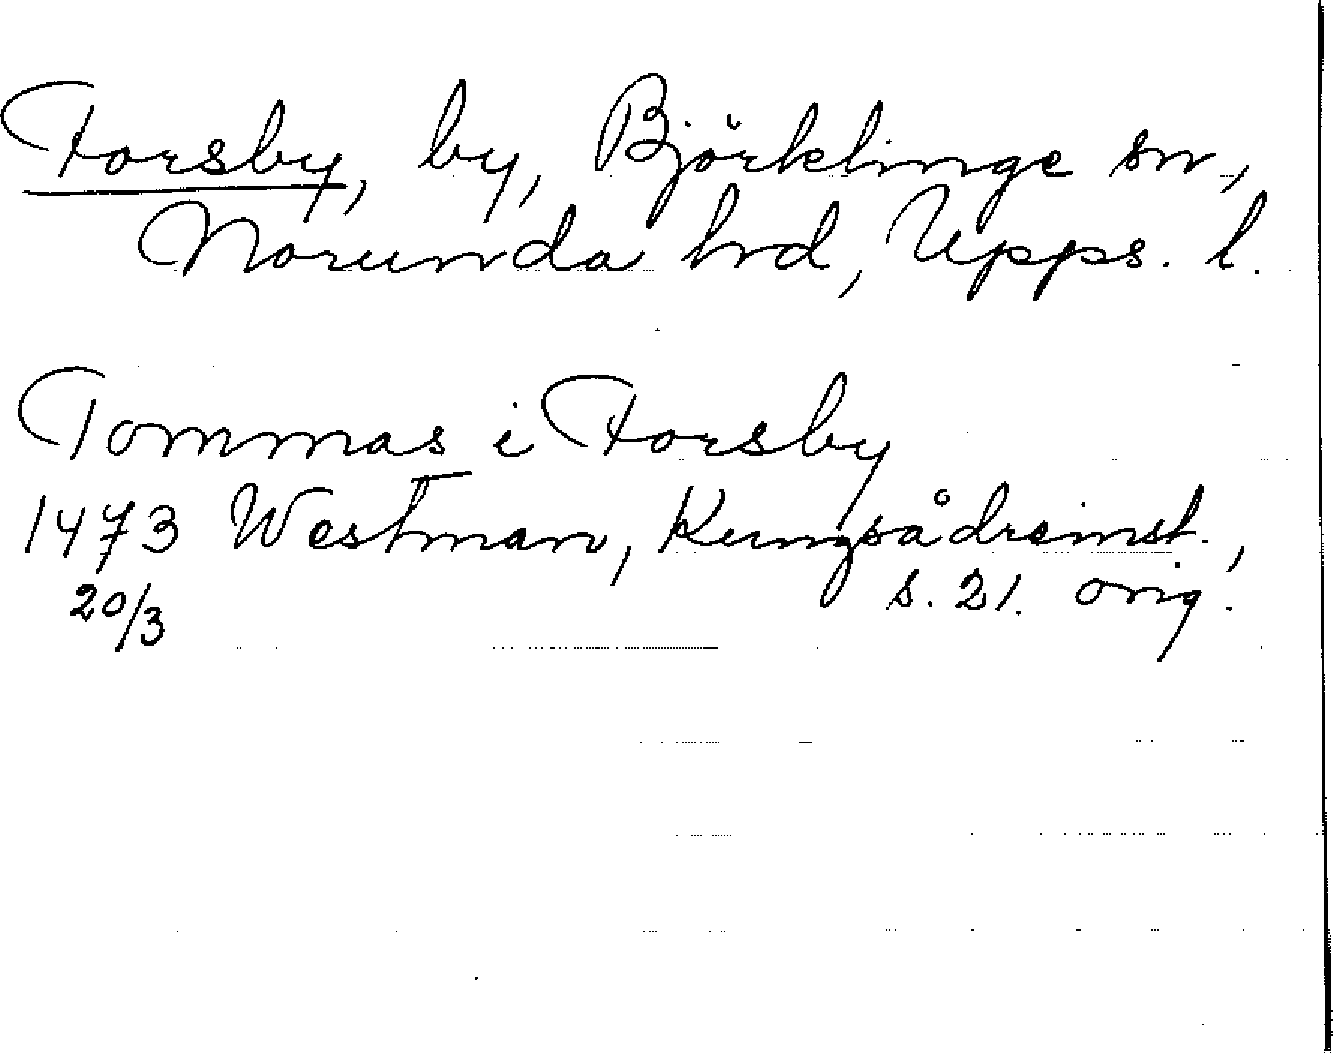 Forsby, by, Björklinge sn,
Norunda hrd, Upps. l.
Tommas i Forsby
1473 Westman, Kungsådreinst.,
20/3 s. 21. orig.